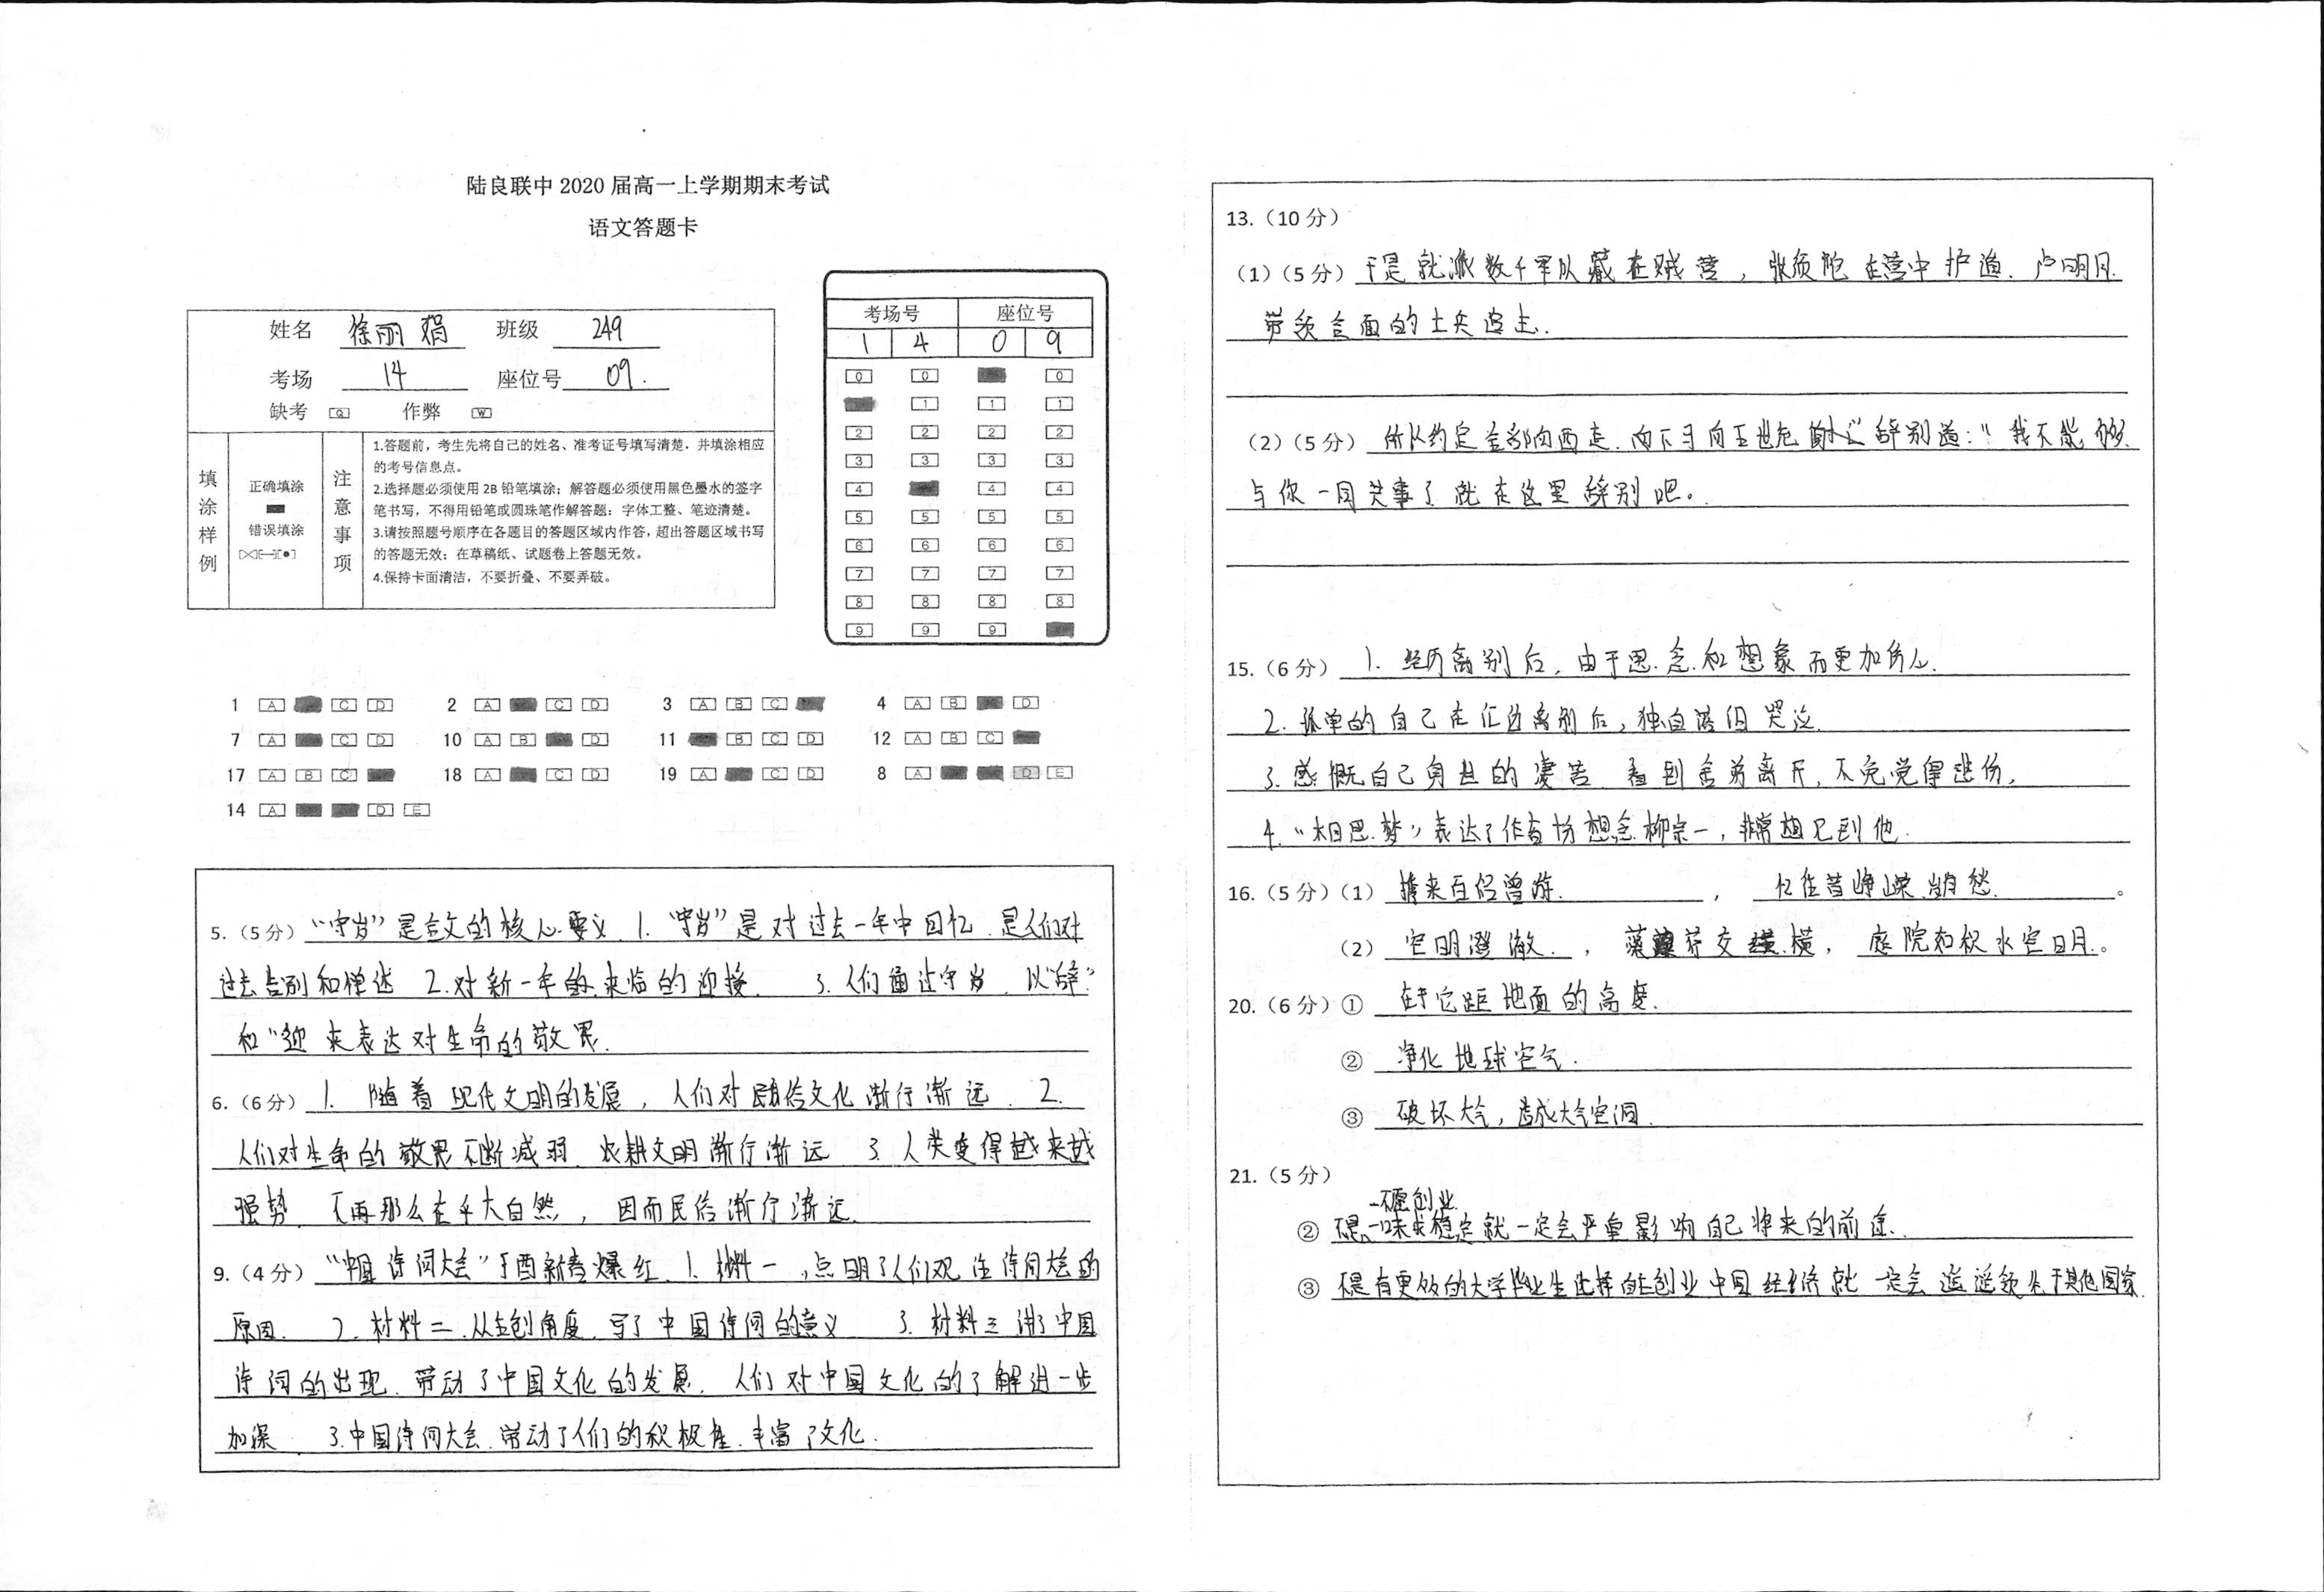 陆良联中 2020 届高一上学期期末考试
语文答题卡
姓名 徐丽娟 班级 249
考场 14 座位号 09.
缺考 [Q] 作弊 [W]
填涂样例
正确填涂
错误填涂
注意事项
1.答题前，考生先将自己的姓名、准考证号填写清楚，并填涂相应
的考号信息点。
2.选择题必须使用 2B 铅笔填涂；解答题必须使用黑色墨水的签字
笔书写，不得用铅笔或圆珠笔作解答题；字体工整、笔迹清楚。
3.请按照题号顺序在各题目的答题区域内作答，超出答题区域书写
的答题无效；在草稿纸、试题卷上答题无效。
4.保持卡面清洁，不要折叠、不要弄破。
考场号 座位号
1 4 0 9
[0] [0] [0]
[1] [1] [1]
[2] [2] [2] [2]
[3] [3] [3] [3]
[4] [4] [4]
[5] [5] [5] [5]
[6] [6] [6] [6]
[7] [7] [7] [7]
[8] [8] [8] [8]
[9] [9] [9]
1 [A] [C] [D] 2 [A] [C] [D] 3 [A] [B] [C] 4 [A] [B] [D]
7 [A] [C] [D] 10 [A] [B] [D] 11 [B] [C] [D] 12 [A] [B] [C]
17 [A] [B] [C] 18 [A] [C] [D] 19 [A] [C] [D] 8 [A] [D] [E]
14 [A] [D] [E]
5.（5 分）“守岁”是全文的核心要义. 1. “守岁”是对过去一年中回忆. 是人们对
过去告别和 2.对新一年的来临的迎接. 3. 人们通过守岁. 以“辞”
和“迎 来表达对生命的敬畏.
6.（6 分）1. 随着现代文明的发展，人们对民俗文化渐行渐远. 2.
人们对生命的敬畏不断减弱. 农耕文明渐行渐远 3. 人类变得越来越
强势. 不再那么在乎大自然，因而民俗渐行渐远.
9.（4 分）“中国诗词大会”于酉新春爆红. 1. 材料一，点明了人们观注诗词大会的
原因. 2. 材料二.从主创角度.写了中国诗词的意义 3. 材料三讲了中国
诗词的出现.带动了中国文化的发展. 人们对中国文化的了解进一步
加深. 3.中国诗词大会.带动了人们的积极性.丰富了文化.
13.（10 分）
（1）（5 分）于是就派数千军队藏在贼营，张须陀在营中护道. 卢明月.
带领全面的士兵追去.
（2）（5 分）所以约定全部向西走.向下寻向王世充 辞别道：“我不能够.
与你一同共事了就在这里辞别吧。
15.（6 分）1. 经历离别后，由于思念和想象而更加伤心.
2. 孤单的自己在江边离别后，独自落泪哭泣.
3. 感慨自己身世的凄苦. 看到舍弟离开，不免觉得悲伤，
4. “相思梦”表达了作者 想念柳宗一，非常想见到他.
16.（5 分）（1）携来百侣曾游. ， 忆往昔峥嵘 愁. 。
（2）空明澄澈. ， 藻荇交横， 庭院和积水空明. 。
20.（6 分）① 在于它距地面的高度.
② 净化地球空气.
③ 破坏大气，造成大气空洞.
21.（5 分）
不愿创业
② 不是一味求稳定就一定会严重影响自己将来的前途.
③ 不是有更多的大学毕业生选择自主创业中国经济就一定会遥遥领先于其他国家.